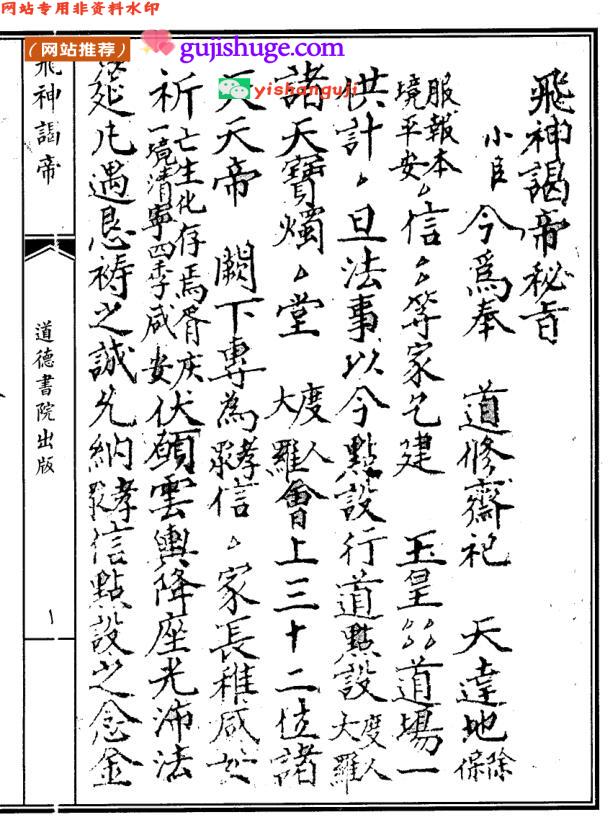 网站专用非资料水印
(网站推荐)
gujishuge.com
yishanguji
飛神謁帝秘旨
小臣 今爲奉 道修齋祀 天達地 除保
服報本境平安 信 等家乞建 玉皇 道場一
供計 旦法事以今點設行道點設 度人大羅
諸天寶燭 堂 度人大羅會上三十二位諸
天天帝 闕下專為孝眾信 家長稚咸
祈 亡生化存焉胥慶一境清寧四季咸安 伏願雲輿降座光沛法
筵凡遇恳禱之誠允納孝眾信點設之念金
飛神謁帝
道德書院出版
一